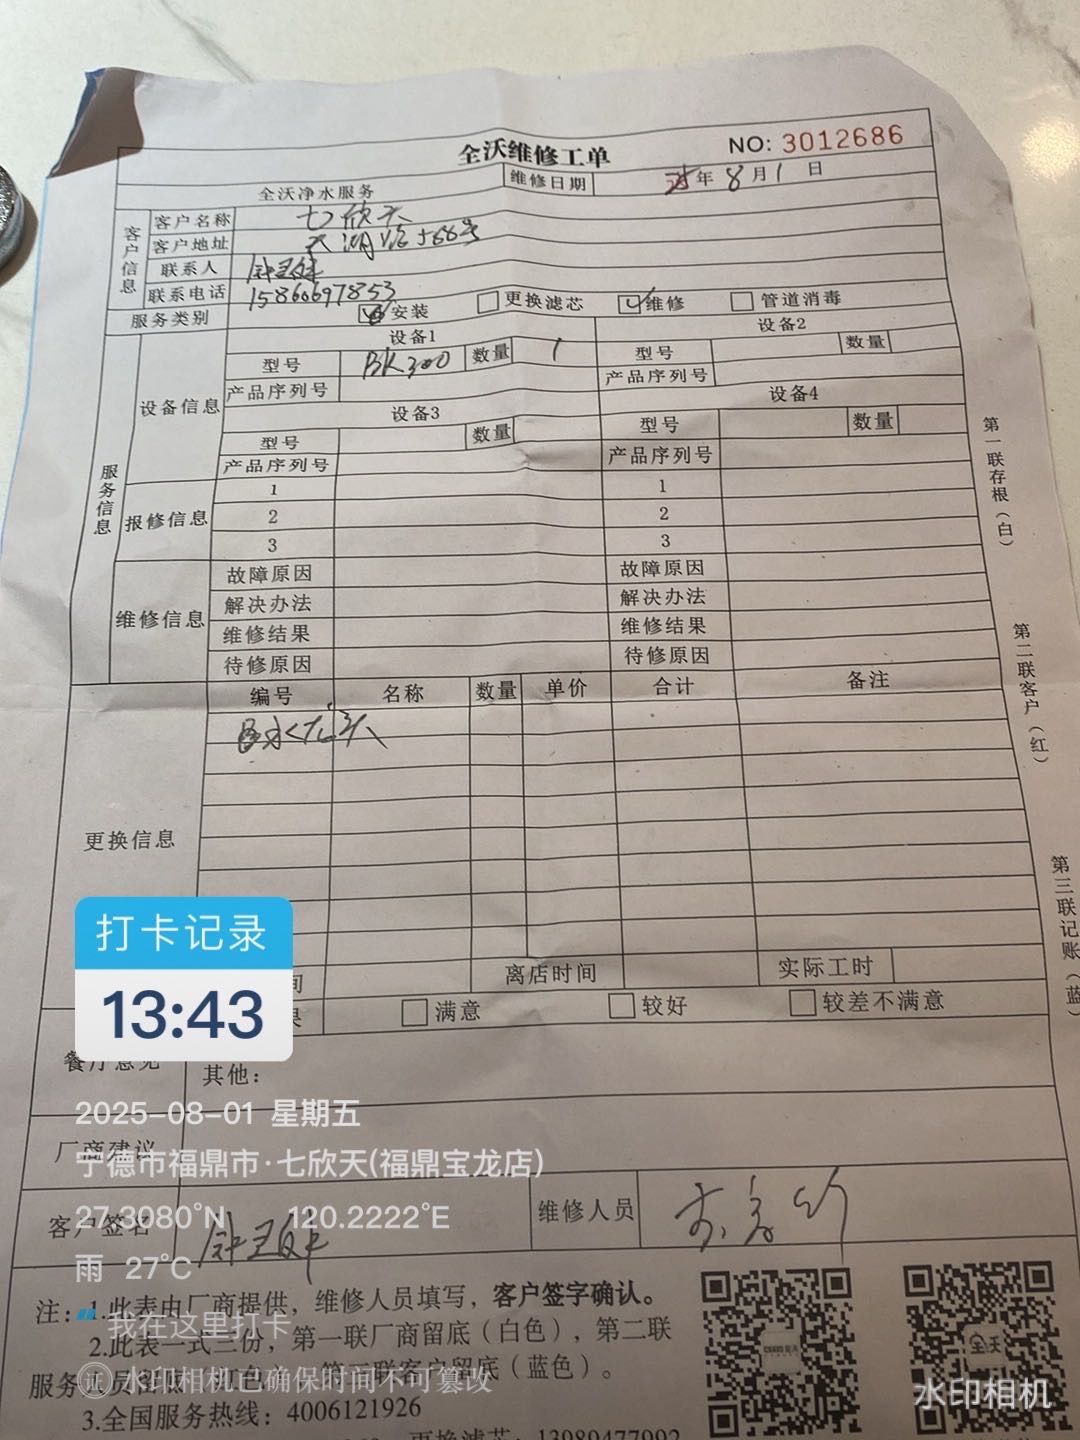 全沃维修工单
NO: 3012686
全沃净水服务 维修日期 25年8月1日
客户信息
客户名称 七欣天
客户地址 太湖路 号
联系人 钟
联系电话 15860697853
服务类别 安装 更换滤芯 维修 管道消毒
服务信息
设备信息
设备1 设备2
型号 BK300 数量 1 型号 数量
产品序列号 产品序列号
设备3 设备4
型号 数量 型号 数量
产品序列号 产品序列号
报修信息
1 1
2 2
3 3
维修信息
故障原因 故障原因
解决办法 解决办法
维修结果 维修结果
待修原因 待修原因
更换信息
编号 名称 数量 单价 合计 备注
水龙头
间 离店时间 实际工时
果 满意 较好 较差不满意
餐厅意见
其他：
厂商建议
客户签名 钟 维修人员
注：1.此表由厂商提供，维修人员填写，客户签字确认。
2.此表一式三份，第一联厂商留底（白色），第二联
服务 员留底（红色） 第三联客户留底（蓝色）。
3.全国服务热线：4006121926
更换滤芯：13989477992
第一联存根（白）
第二联客户（红）
第三联记账（蓝）
打卡记录
13:43
2025-08-01 星期五
宁德市福鼎市·七欣天(福鼎宝龙店)
27.3080°N 120.2222°E
雨 27℃
我在这里打卡
水印相机已确保时间不可篡改
水印相机